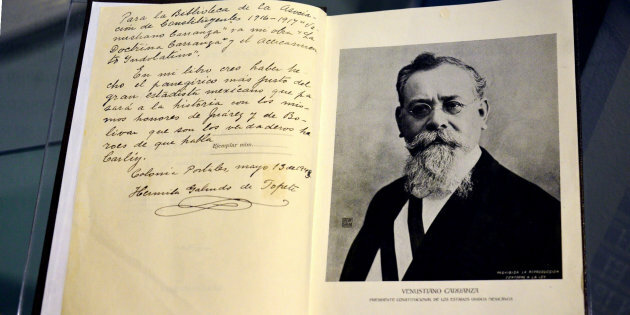 Para la Biblioteca de la Asocia-
ción de Constituyentes 1916-1917 "Ve
nustiano Carranza" va mi obra "La
Doctrina Carranza" y el Acercamien
to Indolatino".
En mi libro creo haber he
cho el panegírico más justo del
gran estadista mexicano que pa
sará a la historia con los mis
mos honores de Juárez y de Bo-
lívar que son los verdaderos hé
roes de que habla
Carlyle.
Ejemplar núm.
Colonia Portales, mayo 13 de
Hermila Galindo de Topete
PROHIBIDA LA REPRODUCCION
CONFORME A LA LEY
VENUSTIANO CARRANZA
PRESIDENTE CONSTITUCIONAL DE LOS ESTADOS UNIDOS MEXICANOS